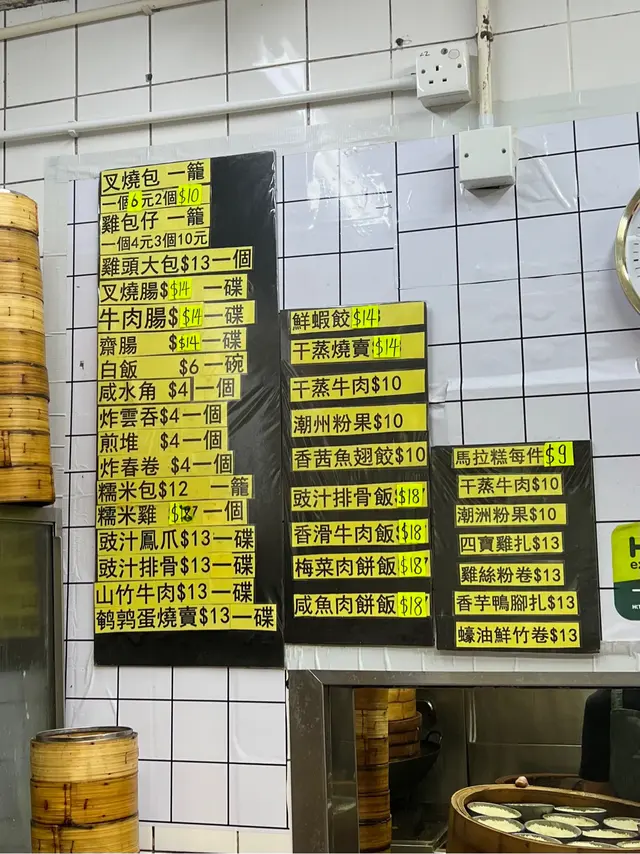 叉燒包 一籠
一個6元2個$10
雞包仔 一籠
一個4元3個10元
雞頭大包$13一個
叉燒腸$14 一碟
牛肉腸$14一碟
齋腸 $14一碟
白飯 $6一碗
咸水角 $4一個
炸雲吞$4一個
煎堆 $4一個
炸春卷 $4一個
糯米包$12 一籠
糯米雞 一個
豉汁鳳爪$13一碟
豉汁排骨$13一碟
山竹牛肉$13一碟
鹌鹑蛋燒賣$13一碟
鮮蝦餃$14
干蒸燒賣$14
干蒸牛肉$10
潮州粉果$10
香茜魚翅餃$10
豉汁排骨飯$18
香滑牛肉飯$18
梅菜肉餅飯$18
咸魚肉餅飯$18
馬拉糕每件$9
干蒸牛肉$10
潮洲粉果$10
四寶雞扎$13
雞絲粉卷$13
香芋鴨腳扎$13
蠔油鮮竹卷$13